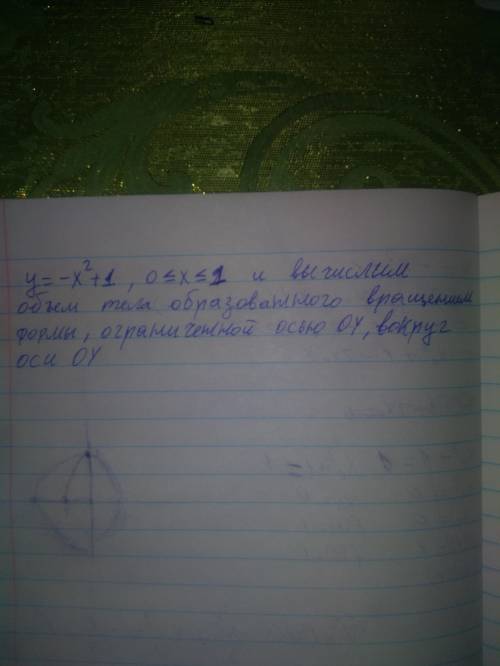 y = -x²+1, 0≤x≤1 и вычислим
объем тела образованного вращением
формы, ограниченной осью OY, вокруг
оси OY